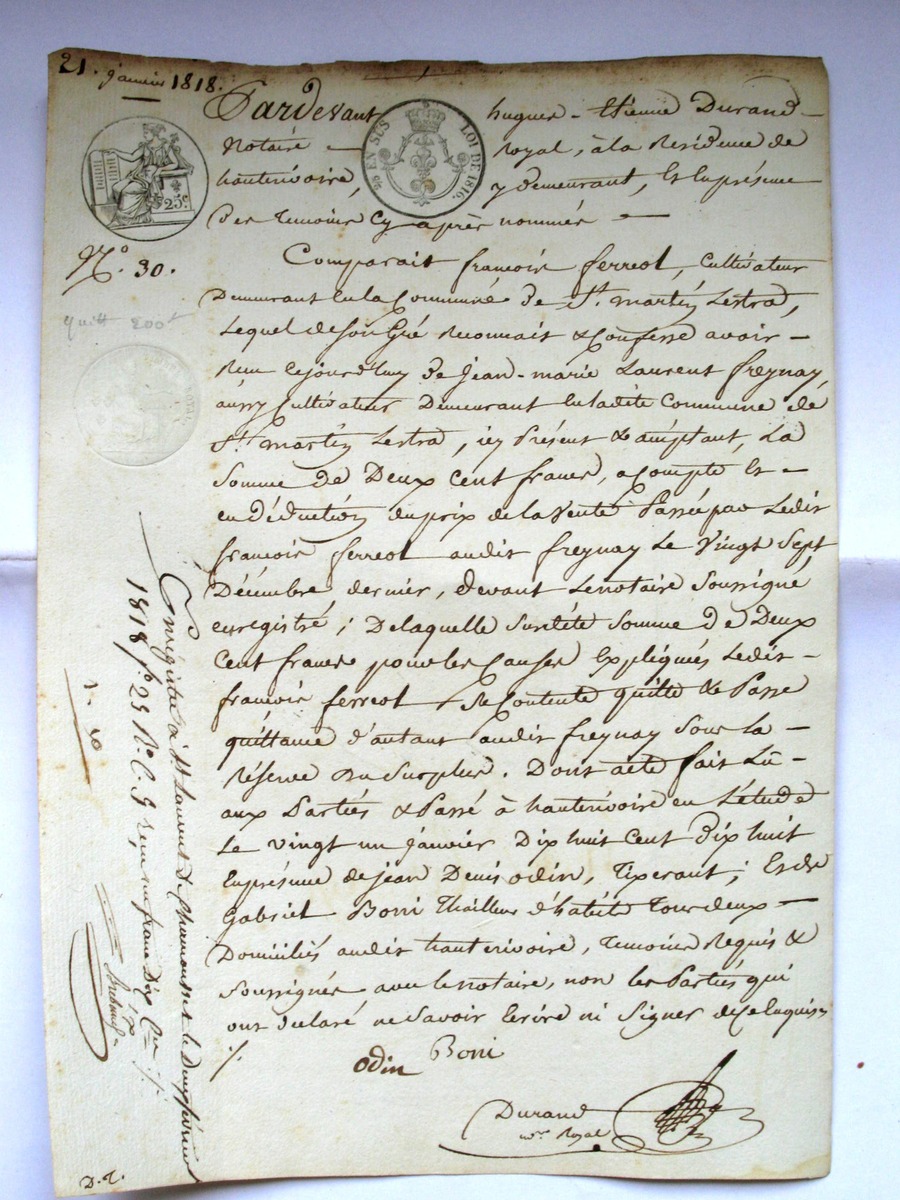 21. janvier 1818.
Pardevant hugues - Etienne Durand -
Notaire - Royal, à la Residence de
hauterivoire, y demeurant, Et En présence
Des temoins Cy après nommés -
EN SUS
LOI DE 1816.
25c
No. 30.
quitt 200f
Comparait françois ferreol, Cultivateur
Demeurant En la Commune de St. martin Lestrad,
Lequel de son Gré Reconnait & Confesse avoir -
Reçu cejourd'huy de Jean-marie Laurent freynay
aussy Cultivateur Demeurant En ladite Commune de
St. martin Lestrad, icy Présent & acceptant, La
Somme de Deux cent francs, acompte Et -
en déduction du prix de la Vente Passée par Ledit
françois ferreol audit freynay Le Vingt Sept
Décembre dernier, devant Le notaire Soussigné
enregistré; De laquelle Susdité Somme de Deux
Cent francs pour les Causes Expliqués Ledit -
françois ferreol Se Contente quitte & Passe
quittance d'autant audit freynay Sous La -
réserve du Surplus. Dont acte fait Lû -
aux Partiés & Passé à hauterivoire en L'étude
Le vingt un janvier Dix huit Cent Dix huit
En présence de jean Denis odin, Tixerant; Et de
Gabriel Boni Thailleur d'habits tous deux -
Domiciliés audit hauterivoire, temoins Requis &
Soussignés avec le notaire, non les Partiés qui
ont déclaré ne Savoir Ecrire ni Signer de ce Enquis
odin Boni
Durand
nre Royal
Enregistré à St Laurent de Chamousset le Deux février
1818 fo 23 Ro C. 9 reçu un franc Dix Cen
D. R.